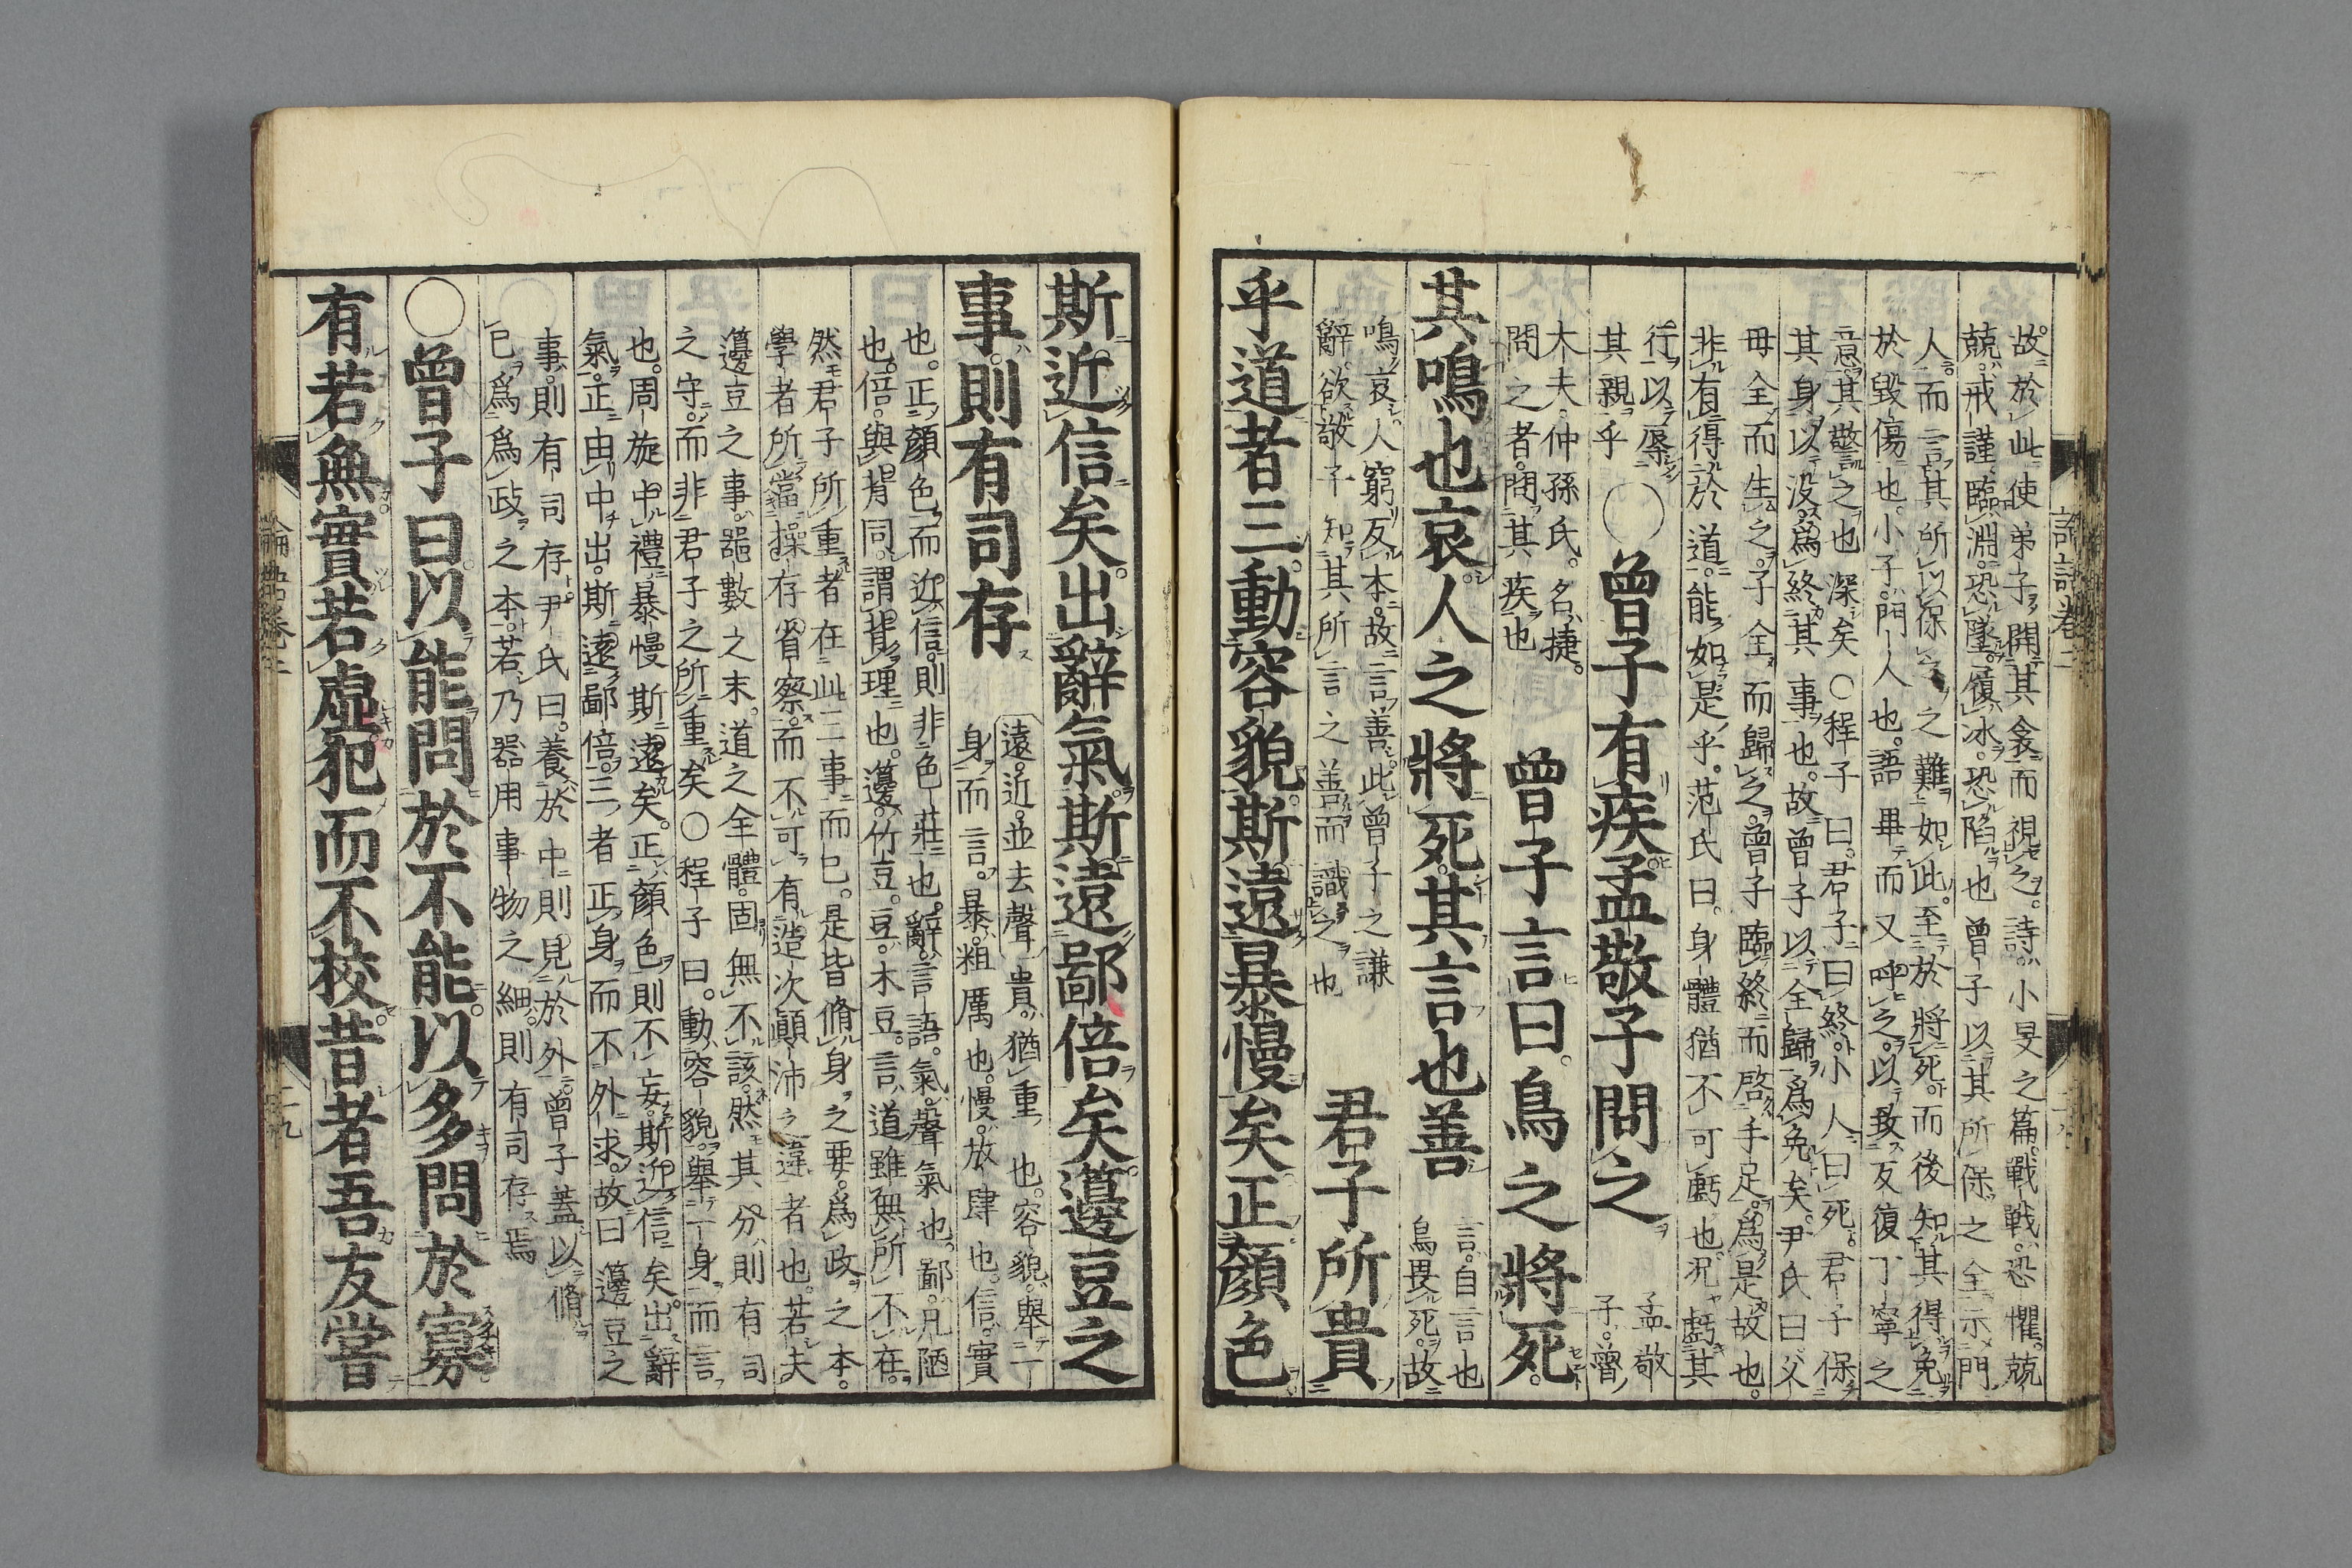 故於此使弟子開其衾而視之。詩小旻之篇。戰戰恐懼。兢
兢。戒謹。臨淵。恐墜。履冰。恐陷也曾子以其所保之全示門
人。而言其所以保之之難如此。至於將死而後知其得免
於毀傷也。小子。門人也。語畢而又呼之。以致反復丁寧之
意。其警之也深矣〇程子曰。君子曰終。小人曰死。君子保
其身以沒。爲終其事也。故曾子以全歸爲免矣。尹氏曰父
母全而生之。子全而歸之。曾子臨終而啓手足。爲是故也。
非有得於道。能如是乎。范氏曰。身體猶不可虧也。况虧其
行以辱
其親乎
〇曾子有疾孟敬子問之
孟敬
子。魯
大夫。仲孫氏。名捷。
問之者。問其疾也
曾子言曰。鳥之將死。
其鳴也哀。人之將死。其言也善
言。自言也
鳥畏死。故
鳴哀。人窮反本。故言善。此曾子之謙
辭。欲敬子知其所言之善而識之也
君子所貴
乎道者三。動容貌。斯遠暴慢矣。正顏色
斯近信矣。出辭氣。斯遠鄙倍矣。籩豆之
事。則有司存
遠。近。並去聲
貴。猶重也。容貌。舉一
身而言。暴。粗厲也。慢。放肆也。信。實
也。正顏色而近信。則非色莊也。辭。言語。氣。聲氣也。鄙。凡陋
也。倍。與背同。謂背理也。籩。竹豆。豆。木豆。言道雖無所不在。
然君子所重者在此三事而已。是皆脩身之要。爲政之本。
學者所當操存省察。而不可有造次顛沛之違者也。若夫
籩豆之事。器數之末。道之全體。固無不該。然其分則有司
之守。而非君子之所重矣〇程子曰。動容貌。舉一身而言
也。周旋中禮暴慢斯遠矣。正顏色則不妄。斯近信矣。出辭
氣。正由中出。斯遠鄙倍。三者正身而不外求。故曰籩豆之
事。則有司存。尹氏曰。養於中則見於外。曾子蓋以脩
已爲爲政之本。若乃器用事物之細。則有司存焉
〇曾子曰。以能問於不能。以多問於寡。
有若無。實若虛。犯而不校。昔者吾友嘗